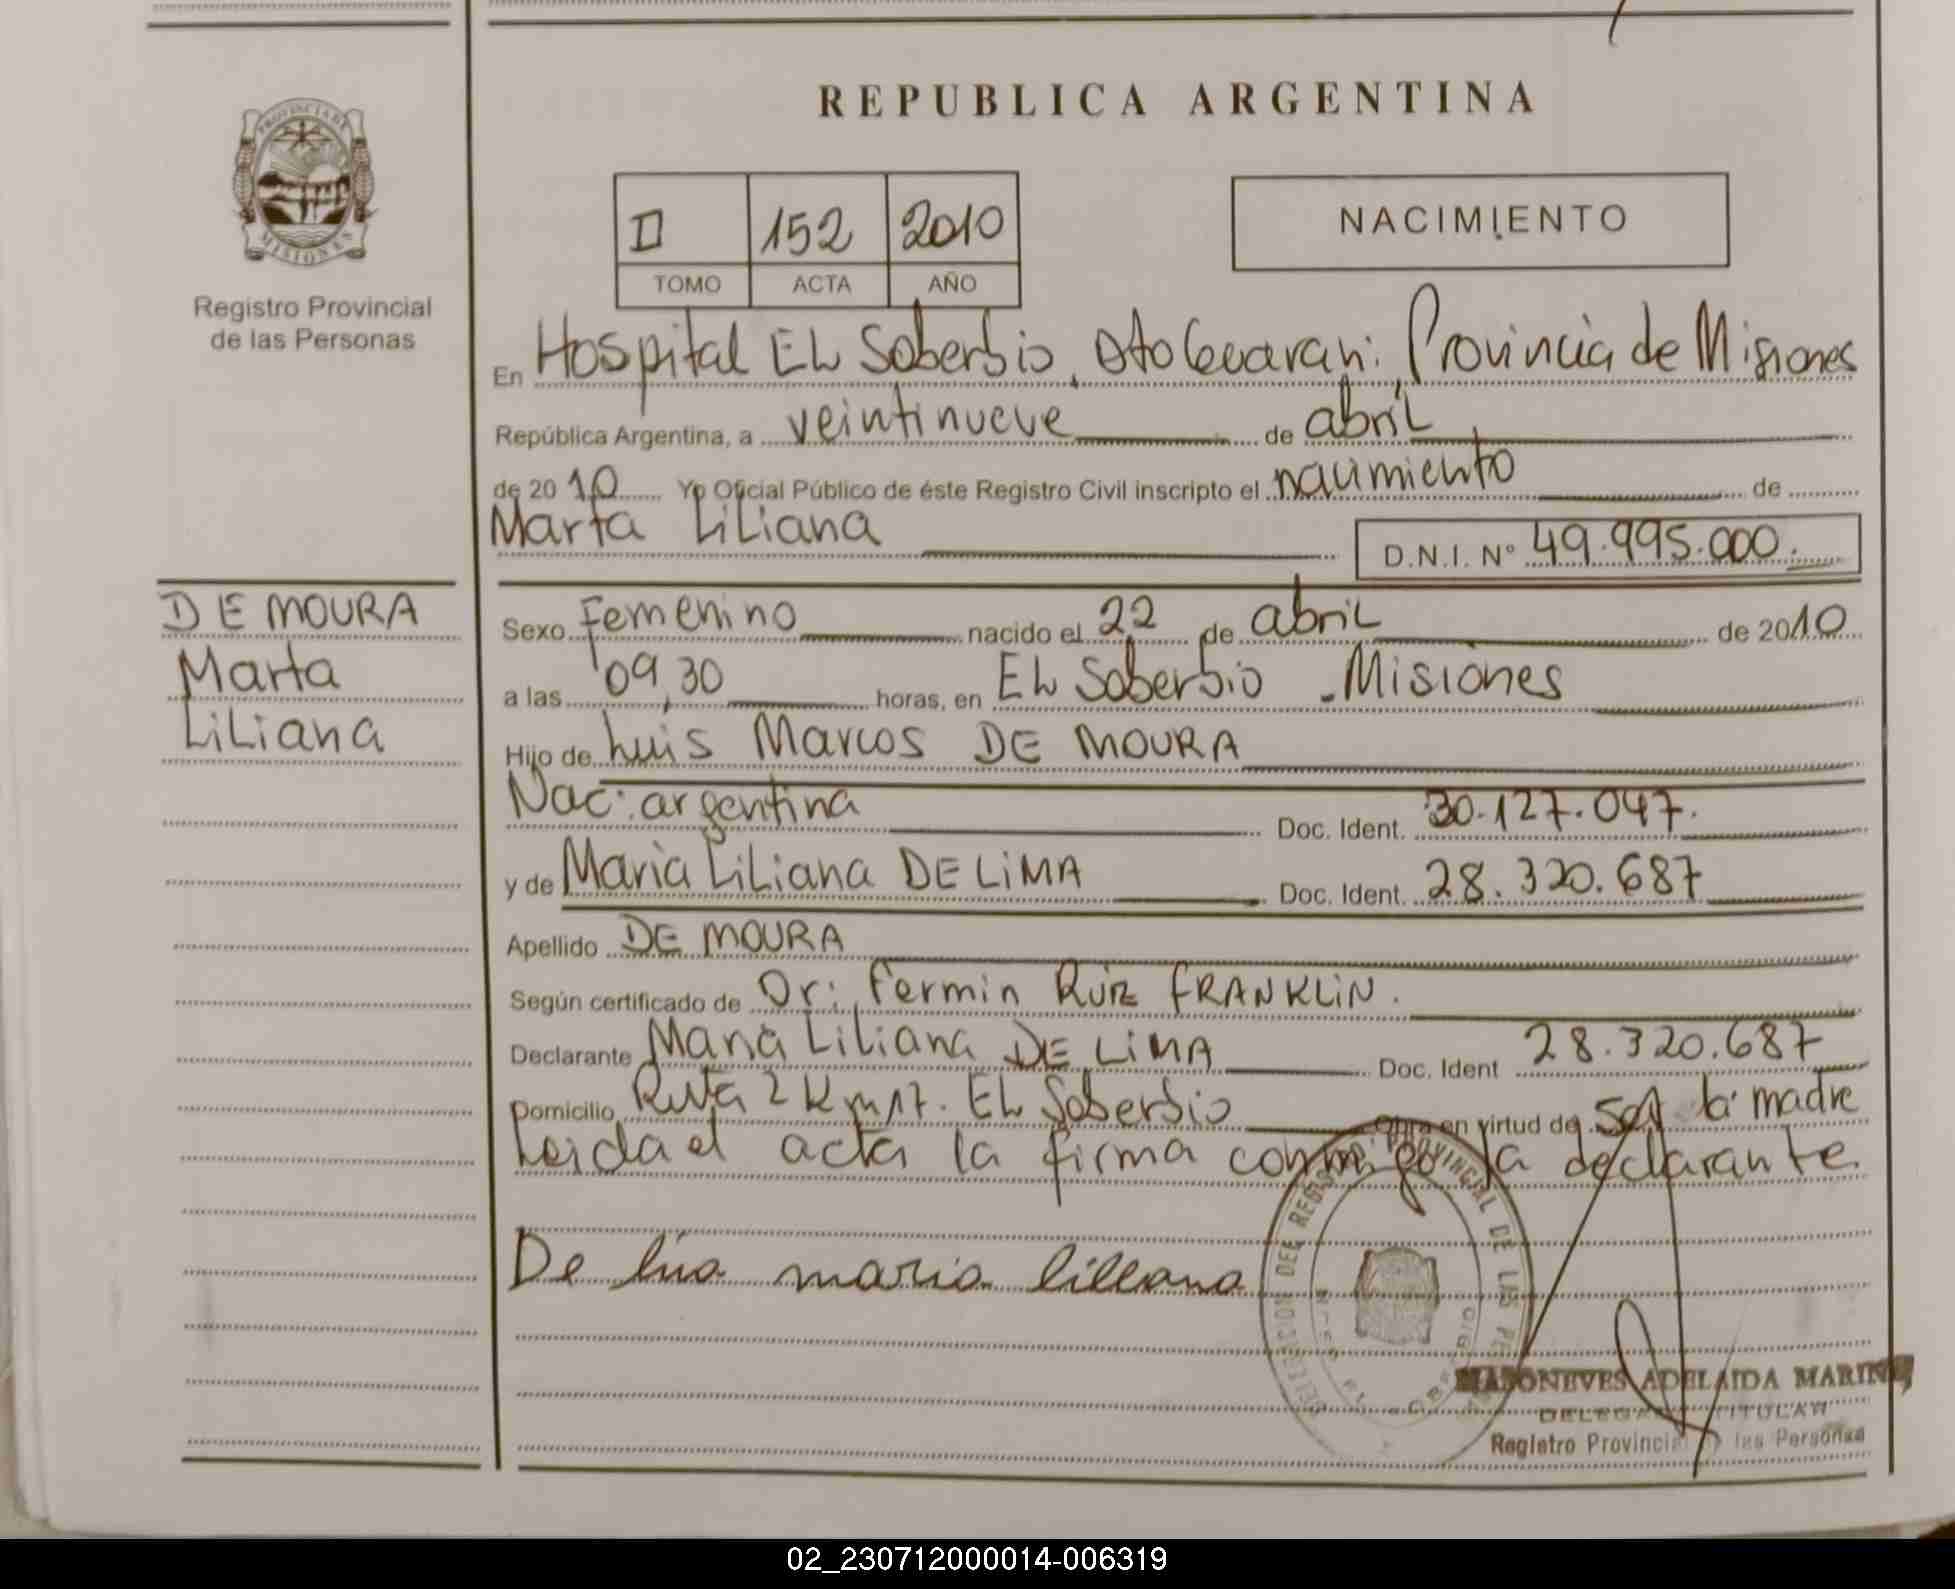 REPUBLICA ARGENTINA
PROVINCIA DE
MISIONES
Registro Provincial
de las Personas
II 152 2010
TOMO ACTA AÑO
NACIMIENTO
En Hospital EL Soberbio, Dto Guarani, Provincia de Misiones
República Argentina, a veintinueve de abril
de 2010 Yo Oficial Público de éste Registro Civil inscripto el nacimiento de
Marta Liliana D.N.I. Nº 49.995.000.
DE MOURA
Marta
Liliana
Sexo Femenino nacido el 22 de abril de 2010
a las 09,30 horas, en EL Soberbio - Misiones
Hijo de Luis Marcos DE MOURA
Nac: argentina Doc. Ident. 30.127.047.
y de Maria Liliana DE LIMA Doc. Ident. 28.320.687
Apellido DE MOURA
Según certificado de Dr: Fermin Ruiz FRANKLIN.
Declarante Maria Liliana DE LIMA Doc. Ident 28.320.687
Domicilio Ruta 2 Km 17. EL Soberbio Obra en virtud de ser la madre
Leida el acta la firma conmigo la declarante
De lia maria liliana
DELEGACION DEL REGISTRO PROVINCIAL DE LAS
ADELAIDA MARIN
DELEGADA TITULAR
Registro Provincial de las Personas
02_230712000014-006319